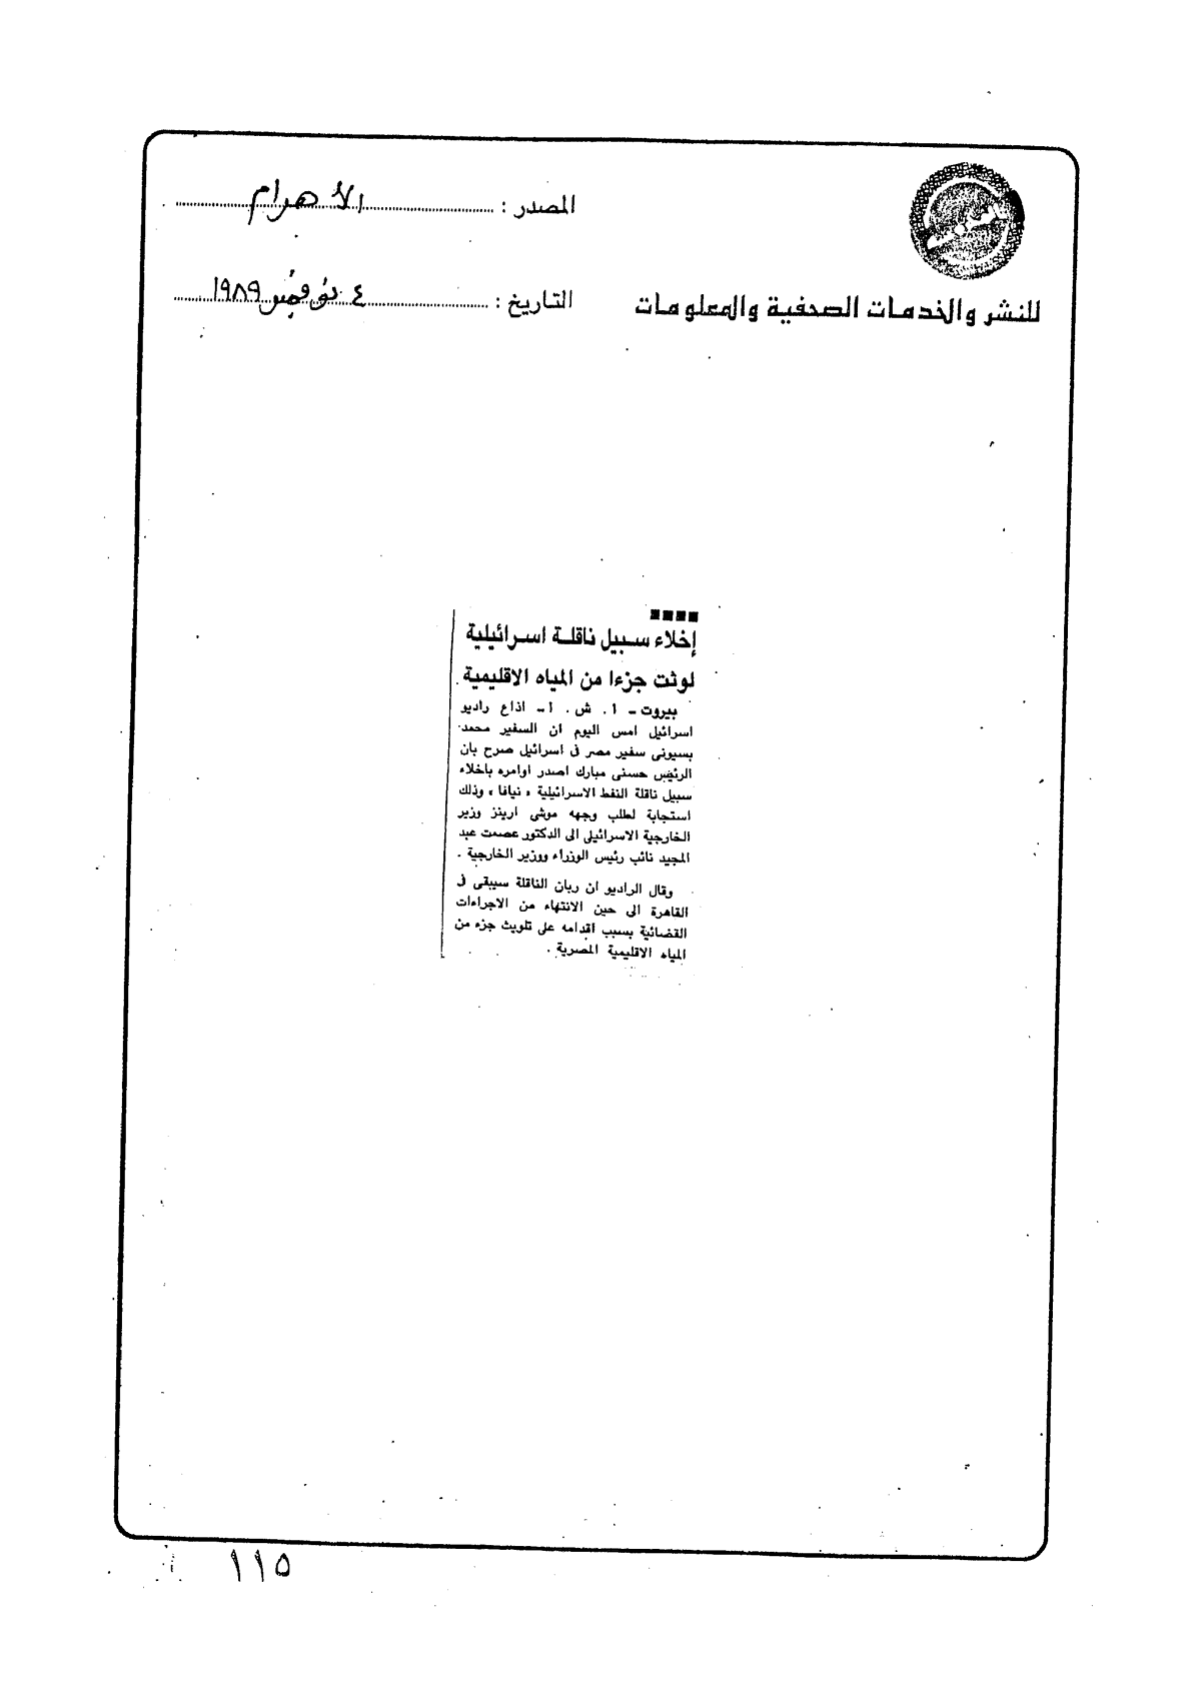 المصدر : الأهرام
للنشر والخدمات الصحفية والمعلومات
التاريخ : ٤ نوفمبر ١٩٨٩
إخلاء سبيل ناقلة اسرائيلية
لوثت جزءا من المياه الاقليمية
بيروت - ا . ش . ا - اذاع راديو
اسرائيل امس اليوم ان السفير محمد
بسيونى سفير مصر فى اسرائيل صرح بان
الرئيس حسنى مبارك اصدر اوامره باخلاء
سبيل ناقلة النفط الاسرائيلية « نيافا » وذلك
استجابة لطلب وجهه موشى ارينز وزير
الخارجية الاسرائيلى الى الدكتور عصمت عبد
المجيد نائب رئيس الوزراء ووزير الخارجية .
وقال الراديو ان ربان الناقلة سيبقى فى
القاهرة الى حين الانتهاء من الاجراءات
القضائية بسبب اقدامه على تلويث جزء من
المياه الاقليمية المصرية .
١١٥